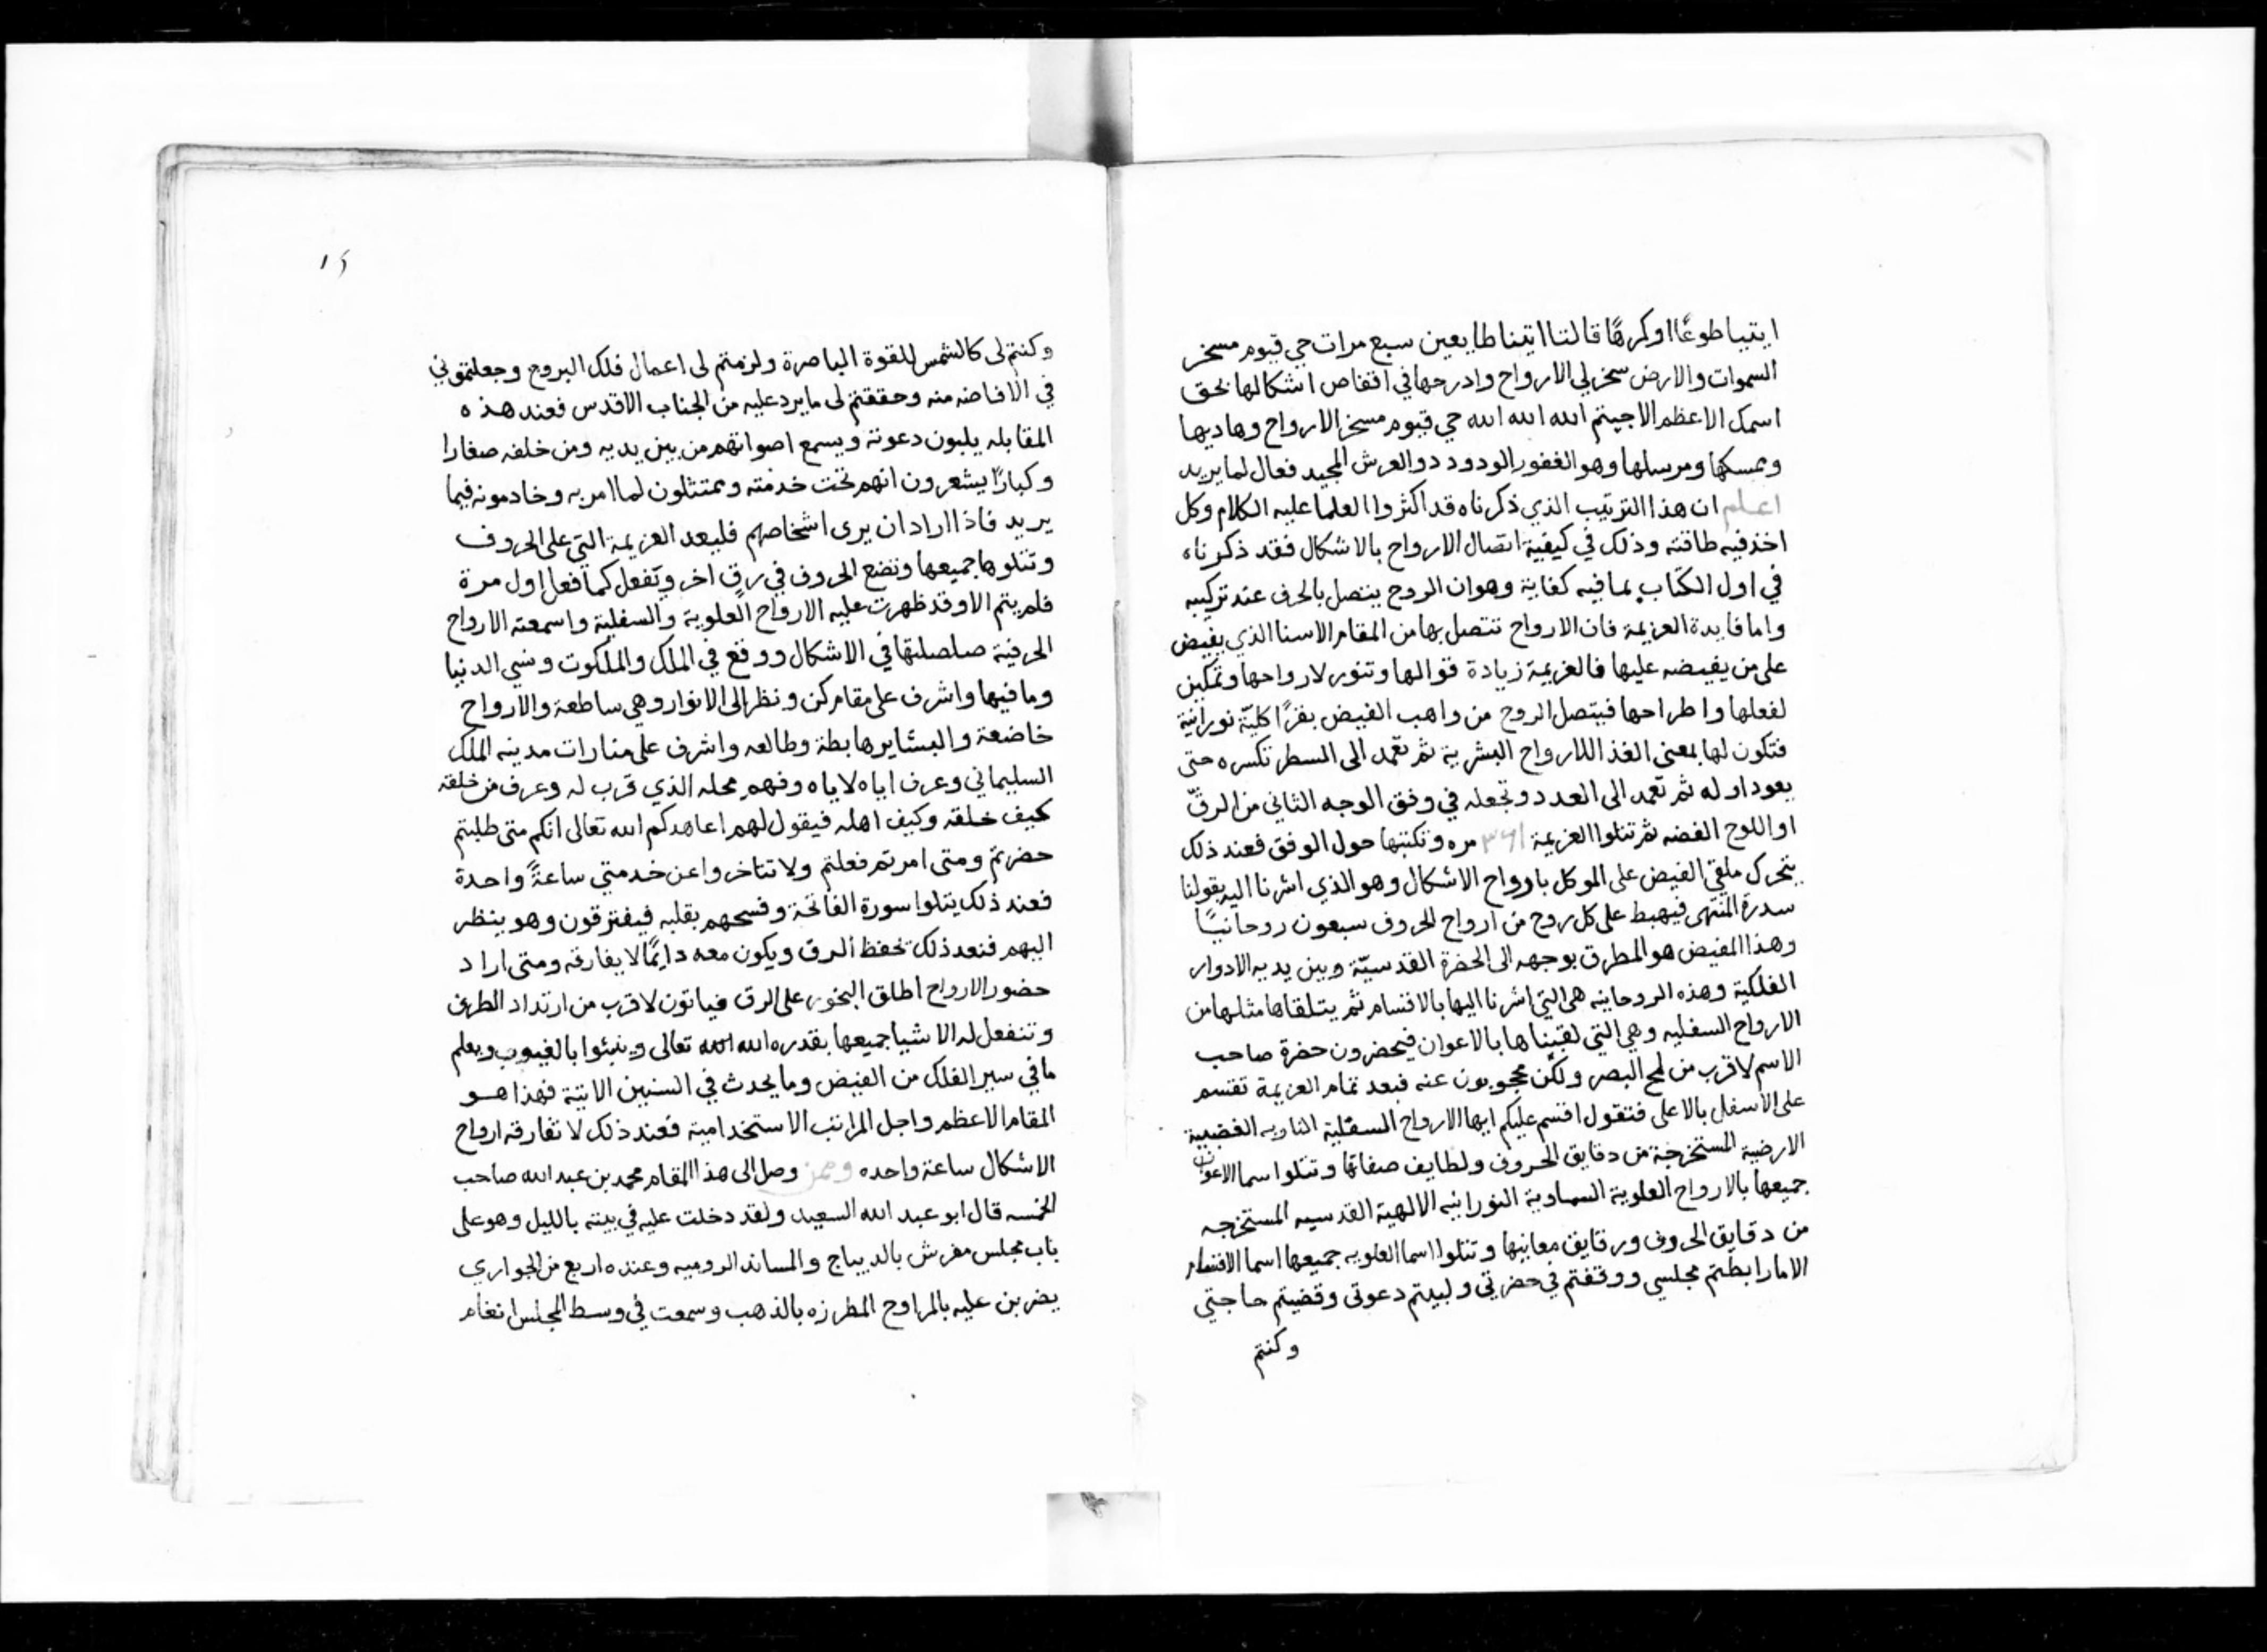 ايتيا طوعًا اوكرهًا قالتا اتينا طايعين سبع مرات حي قيوم مسخر
السموات والارض سخر لي الارواح وادرجها في اقفاص اشكالها بحق
اسمك الاعظم الاجبتم الله الله الله حي قيوم مسخر الارواح وهاديها
وممسكها ومرسلها وهو الغفور الودود ذو العرش المجيد فعال لما يريد
اعلم ان هذا الترتيب الذي ذكرناه قد اكثروا العلما عليه الكلام وكل
اخذ فيه طاقته وذلك في كيفية اتصال الارواح بالاشكال فقد ذكرناه
في اول الكتاب بما فيه كفاية وهو ان الروح يتصل بالحرف عند تركيبه
واما فايدة العزيمة فان الارواح تتصل بها من المقام الاسنا الذي يفيض
على من يفيضه عليها فالعزيمة زيادة قوالها وتنور لارواحها وتمكين
لفعلها واطراحها فيتصل الروح من واهب الفيض بقرا كليّة نورانية
فتكون لها بمعنى الغذا للارواح البشرية ثم تعمد الى السطر تكسره حتى
يعود اوله ثم تعمد الى العدد وتجعله في وفق الوجه الثاني من الرقّ
او اللوح الفضه ثم تتلوا العزيمة مره وتكتبها حول الوفق فعند ذلك
يتحرك ملقي الفيض على الموكل باورواح الاشكال وهو الذي اشرنا اليه بقولنا
سدرة المنتهى فيهبط على كل روح من ارواح الحروف سبعون روحانيًا
وهذا المفيض هو المطرق بوجهه الى الحضرة القدسيّة وبين يديه الادوار
الفلكية وهذه الروحانيه هي التي اشرنا اليها بالاقسام ثم يتلقاها مثلها من
الارواح السفليه وهي التي لقبناها بالاعوان فيحضرون حضرة صاحب
الاسم لاقرب من لمح البصر ولكن محجوبون عنه فبعد تمام العزيمة تقسم
على الاسفل بالاعلى فتقول اقسم عليكم ايها الارواح السفلية الناريه الغضبية
الارضية المستخرجة من دقايق الحروف ولطايف صفاتها وتتلوا اسما الاعوان
جميعها بالارواح العلوية السماوية النورانيه الالهية القدسيه المستخرجه
من دقايق الحروف ورقايق معانيها وتتلوا اسما العلويه جميعها اسما الاقسام
الاما رابطتم مجلسي ووقفتم في حضرتي ولبيتم دعوتى وقضيتم حاجتي
وكنتم
١٢
وكنتم لى كالشمس للقوة الباصرة ولزمتم لى اعمال فلك البروج وجعلتموني
في الافاضه منه وحققتم لى ما يرد عليه من الجناب الاقدس فعند هذه
المقابله يلبون دعوته ويسمع اصواتهم من بين يديه ومن خلفه صغارا
وكبارًا يشعرون انهم تحت خدمته وممتثلون لما امر به وخادمونه فيما
يريد فاذا اراد ان يرى اشخاصهم فليعد العزيمة التي على الحروف
وتتلوها جميعها وتضع الحروف في رق اخر وتفعل كما فعل اول مرة
فلم يتم الا وقد ظهرت عليه الارواح العلوية والسفلية واسمعته الارواح
الحرفية صلصلتها في الاشكال ووقع في الملك والملكوت ونسي الدنيا
وما فيها واشرف على مقام كن ونظر الى الانوار وهي ساطعة والارواح
خاضعة والبشاير هابطة وطالعه واشرف على منارات مدينه الملك
السليماني وعرف اياه لاياه وفهم محله الذي قرب له وعرف من خلقه
كيف خلقه وكيف اهله فيقول لهم اعاهدكم الله تعالى انكم متى طلبتم
حضرتم ومتى امرتم فعلتم ولا تتاخروا عن خدمتي ساعةً واحدة
فعند ذلك يتلوا سورة الفاتحة وفسحهم بقلبه فيفترقون وهو ينظر
اليهم فنعد ذلك تحفظ الرق ويكون معه دايمًا لا يفارقه ومتى اراد
حضور الارواح اطلق البخور على الرق فياتون لاقرب من ارتداد الطرف
وتنفعل له الاشيا جميعها بقدره الله الله تعالى وينبئوا بالغيوب ويعلم
ما في سير الفلك من الفيض وما يحدث في السنين الاتية فهذا هو
المقام الاعظم واجل المراتب الاستخدامية فعند ذلك لا تفارقه ارواح
الاشكال ساعة واحده وممن وصل الى هذا المقام محمد بن عبد الله صاحب
الخمسه قال ابو عبد الله السعيد ولقد دخلت عليه في بيته بالليل وهو على
باب مجلس مفرش بالديباج والمساند الروميه وعنده اربع من الجواري
يضربن عليه بالمراوح المطرزه بالذهب وسمعت في وسط المجلس انغام